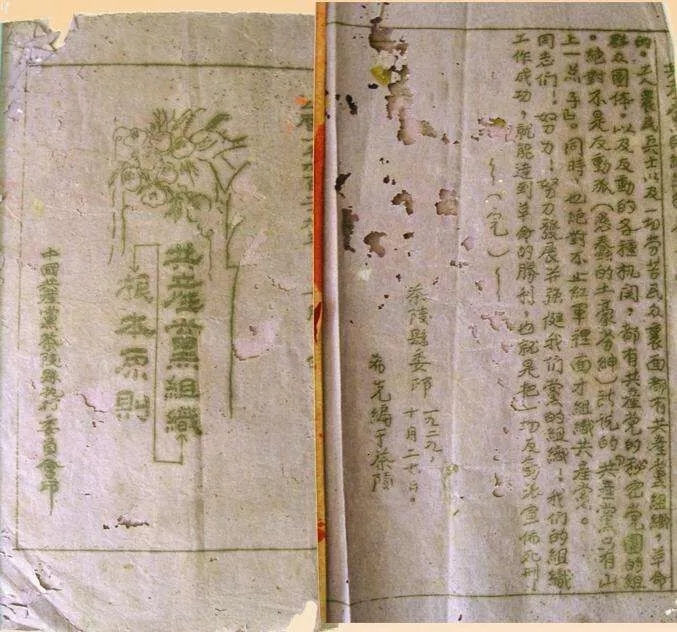 共產黨組織
根本原則
中國共產黨茶陵縣執行委員會印
的。工人農民兵士以及一切勞苦民众裏面都有共產黨組織,革命
群众團体。以及反動的各種机関。都有共産党的秘密党團的組
。絕對不是反動派(愚蠢的土豪劣紳)所说的"共產黨只有山
上一点子"。同時,也絕對不止紅軍裡面才組織共產党。
同志們!努力!努力發展並强健我們党的組織!我們的組織
工作成功,就能達到革命的勝利,也就是把一切反動派宣佈死刑
(完)
茶陵縣委印
一九二九,
十月二十日。
希先編于茶陵